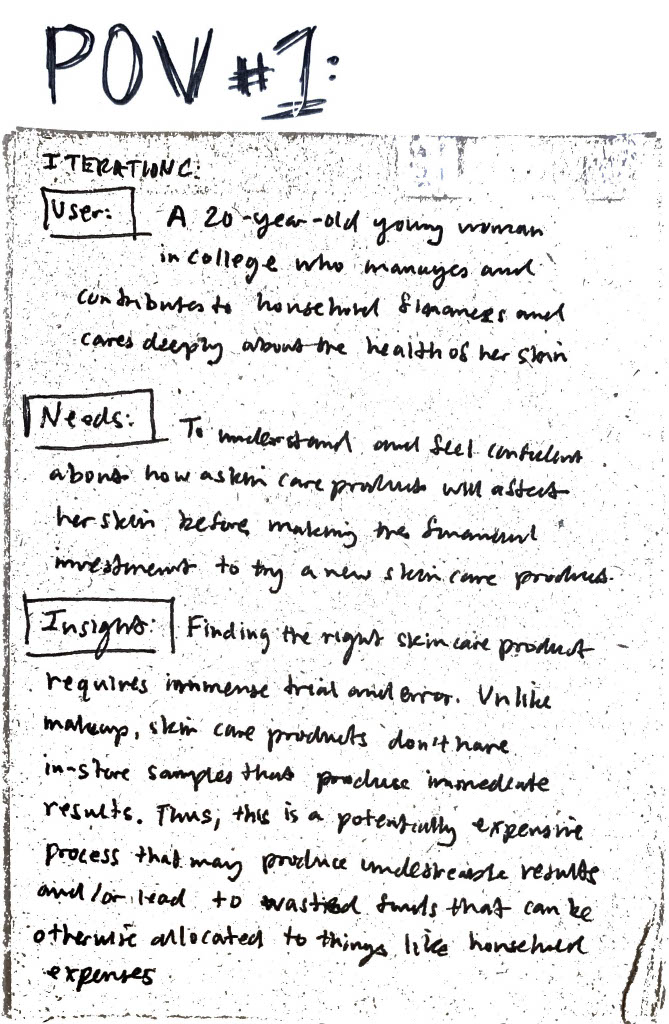 POV #1:
ITERATION C:
User: A 20-year-old young woman
in college who manages and
contributes to household finances and
cares deeply about the health of her skin
Needs: To understand and feel confident
about how a skin care product will affect
her skin before making the financial
investment to try a new skin care product.
Insight: Finding the right skincare product
requires immense trial and error. Unlike
makeup, skin care products don't have
in-store samples that produce immediate
results. Thus, this is a potentially expensive
process that may produce undesireable results
and/or lead to wasted funds that can be
otherwise allocated to things like household
expenses